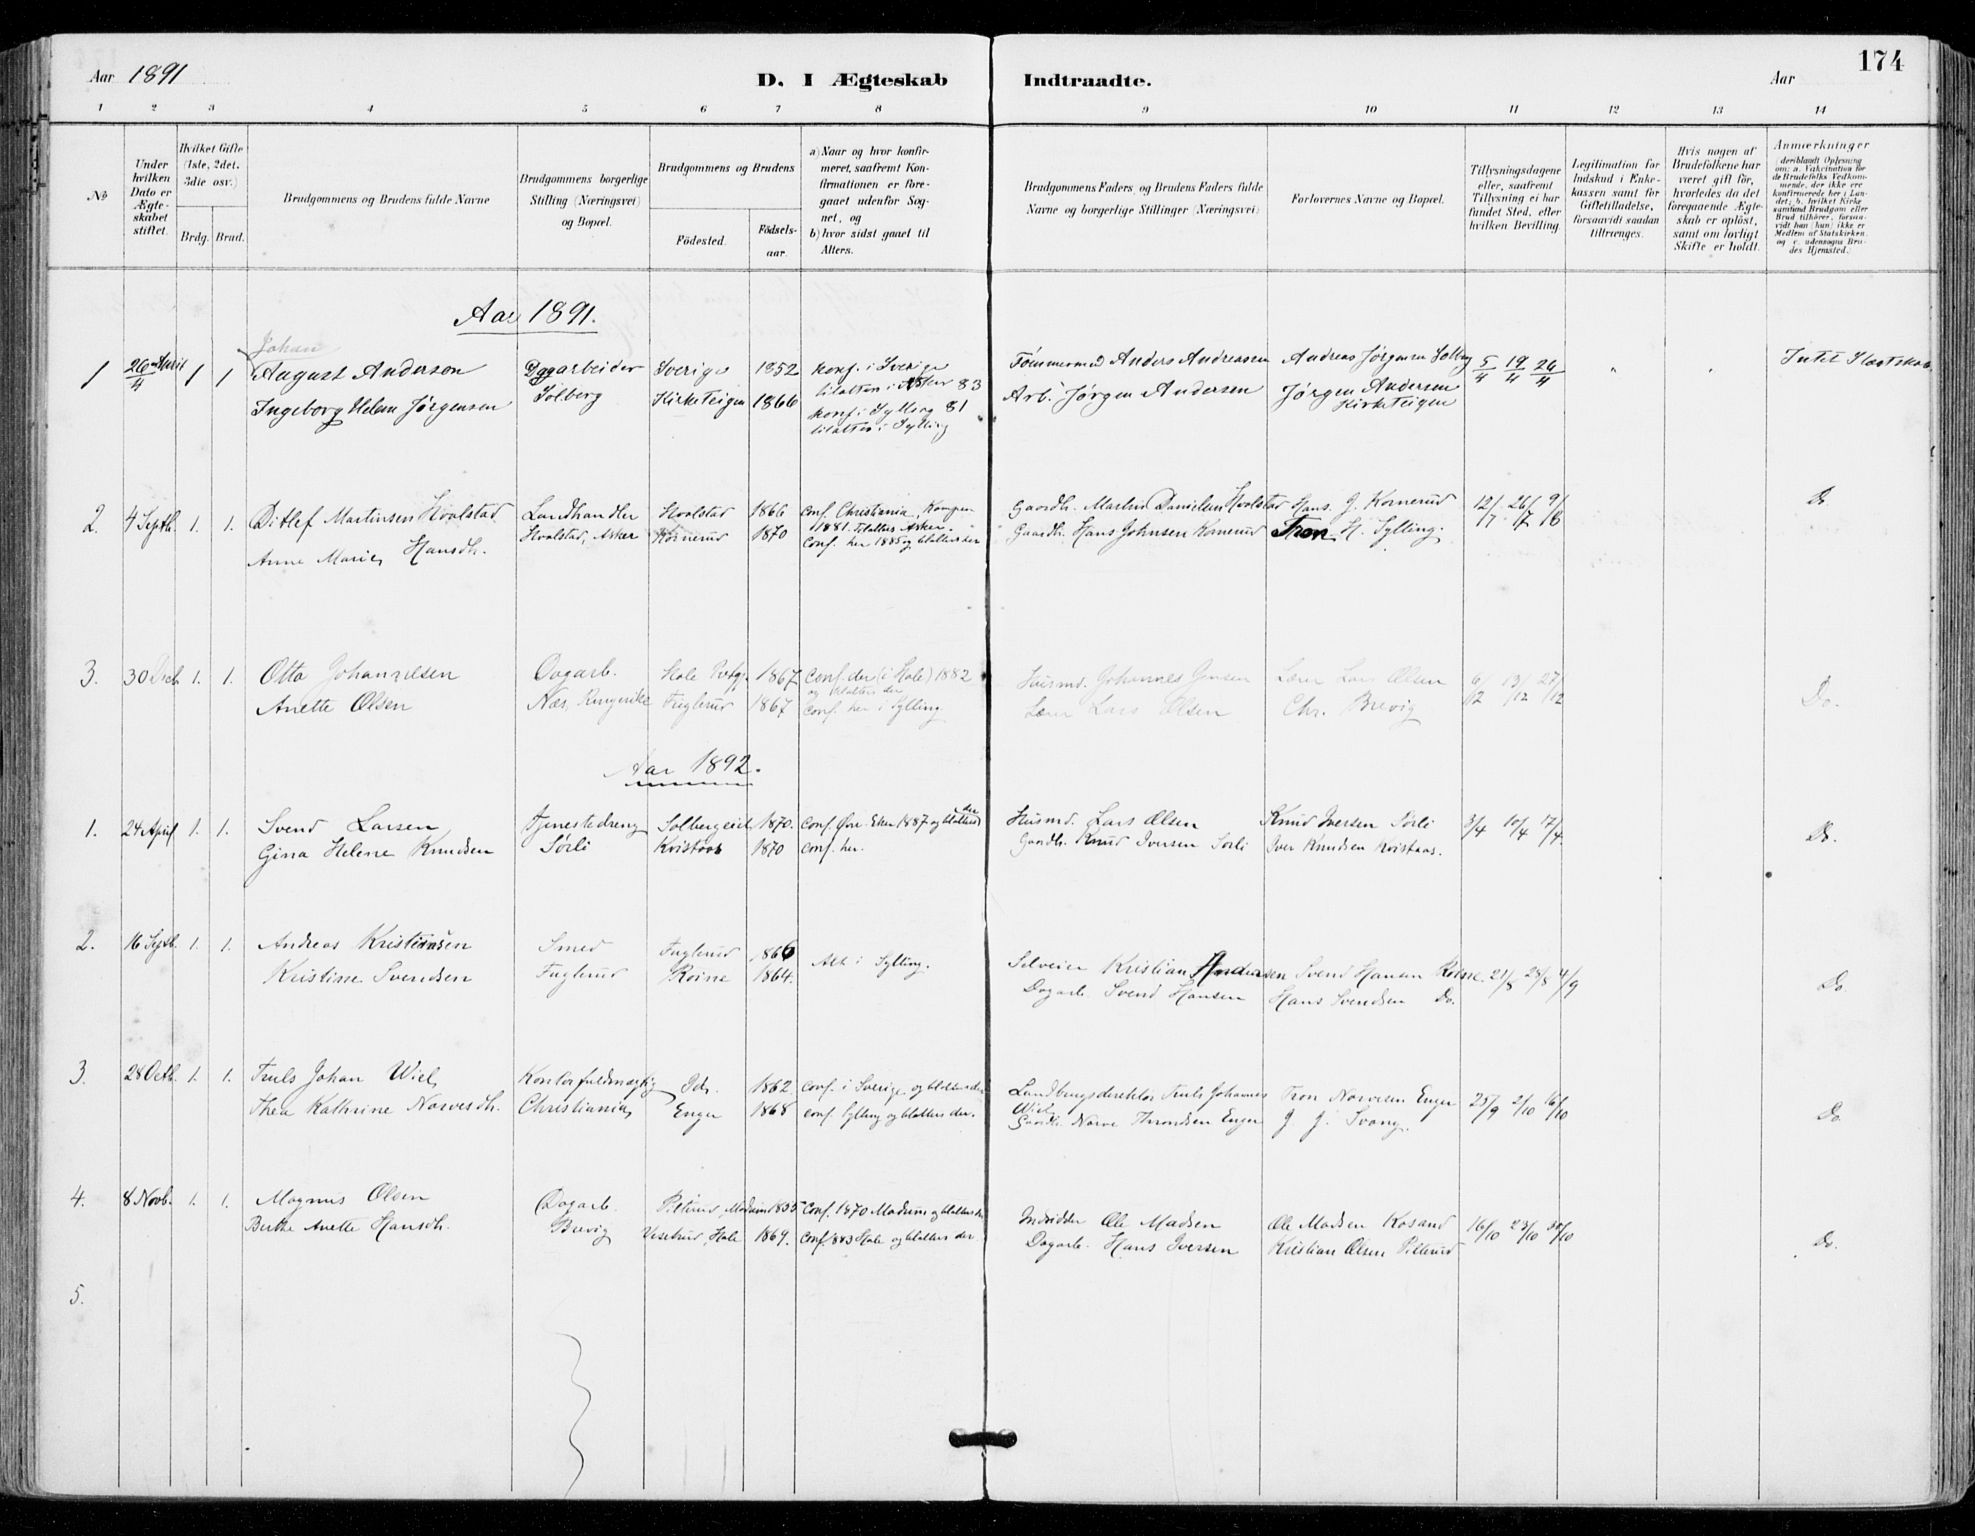 Aar 1891
D. I Ægteskab Indtraadte.
Aar
174
1 2 3 4 5 6 7 8 9 10 11 12 13 14
No
Under hvilken Dato er Ægteskabet stiftet.
Hvilket Gifte (1ste, 2det, 3die osv.)
Brdg. Brud.
Brudgommens og Brudens fulde Navne
Brudgommens borgerlige Stilling (Næringsvei) og Bopæl.
Brudgommens og Brudens
Födested.
Födselsaar.
a) Naar og hvor konfirmeret, saafremt Konfirmationen er foregaaet udenfor Sognet, og
b) hvor sidst gaaet til Alters.
Brudgommens Faders, og Brudens Faders fulde Navne og borgerlige Stillinger (Næringsvei)
Forlovernes Navne og Bopæl.
Tillysningsdagene eller, saafremt Tillysning ei har fundet Sted, efter hvilken Bevilling
Legitimation for Indskud i Enkekassen samt for Giftetilladelse, forsaavidt saadan tiltrænges.
Hvis nogen af Brudefolkene har været gift för, hvorledes da det foregaaende Ægteskab er oplöst, samt om lovligt Skifte er holdt.
Anmærkninger (deriblandt Oplysning om: a. Vakcination for de Brudefolks Vedkommende, der ikke ere konfirmerede her i Landet; b. hvilket Kirkesamfund Brudgom eller Brud tilhörer, forsaavidt han (hun) ikke er Medlem af Statskirken, og c. udensogns Brudes Hjemsted.)
Aar 1891.
Johan
1 26 April/4 1 1 August Anderson Dagarbeider Sverige 1852 konf. i Sverige Tømmermd Anders Andreassen Andreas Jørgensen Solberg 5/4 19/4 26/4 Intet Slægtskab
tilalters i Asker 83
Ingeborg Helene Jørgensen Solberg Kirketeigen 1866 konf. i Sylling 81 Arb. Jørgen Andersen Jørgen Andersen Kirketeigen
tilalters i Sylling
2. 4 Septb. 1. 1. Ditlef Martinsen Hvalstad Landhandler Hvalstad 1866 Conf. Christiania, Kampen Gaardb. Martin Danielsen Hvalstad Hans J. Kornerud 12/7 26/7 9/8 Do
1881. tilalters Asker.
Anne Marie Hansdh. Hvalstad, Asker Kornerud 1870 Conf. her 1885 og tilalters her Gaardb. Hans Johnsen Kornerud Tron H. Sylling.
3. 30 Decb 1. 1. Otto Johannesen Dagarb. Hole 1867 Conf. der (i Hole) 1882 Husmd. Johannes Jensen Lærer Lars Olsen 6/12 13/12 27/12 Do.
og tilalters der
Anette Olsen Næs, Ringerike Fuglerud 1867 Conf. her i Sylling Lærer Lars Olsen Chr. Brevig
Aar 1892.
1. 24 April 1. 1. Svend Larsen Tjenestedreng Solbergeie 1870. Conf. Øvre Eker 1887 og tilalters der Husmd. Lars Olsen Knud Iversen Sørli 3/4 10/4 17/4. Do.
Gina Helene Knudsen Sørli Kvistaas 1870 Conf. her. Gaardb. Knud Iversen Sørli Iver Knudsen Kvistaas.
2. 16 Septb. 1. 1. Andreas Kristiansen Smed Fuglerud 1866 Alt i Sylling. Selveier Kristian Andersen Svend Hansen Roine. 21/8 28/8 4/9 Do.
Kristine Svendsen Fuglerud Roine 1864. Dagarb. Svend Hansen Hans Svendsen Do.
3. 28 Octb. 1. 1. Truls Johan Wiel Kontorfuldmægtig Ids. 1862 Conf. i Sverige og tilalters der Landbrugsdirektør Truls Johannes Wiel Tron Narvesen Enger 25/9 2/10 16/10 Do.
Thea Kathrine Narvesdh. Christiania Enger 1868 Conf. Sylling og tilalters der. Gaardb. Narve Throndsen Enger J. J. Svang.
4. 8 Novb. 1. 1. Magnus Olsen Dagarb. Pilterud, Modum 1855 Conf. 1870 Modum og tilalters der Inderster Ole Madsen Ole Madsen Kosand 16/10 23/10 30/10 Do.
Berthe Anette Hansdh. Bervig Hole 1869. Conf. 1883 Hole og tilalters der. Dagarb. Hans Iversen Kristian Olsen Pilterud
5.